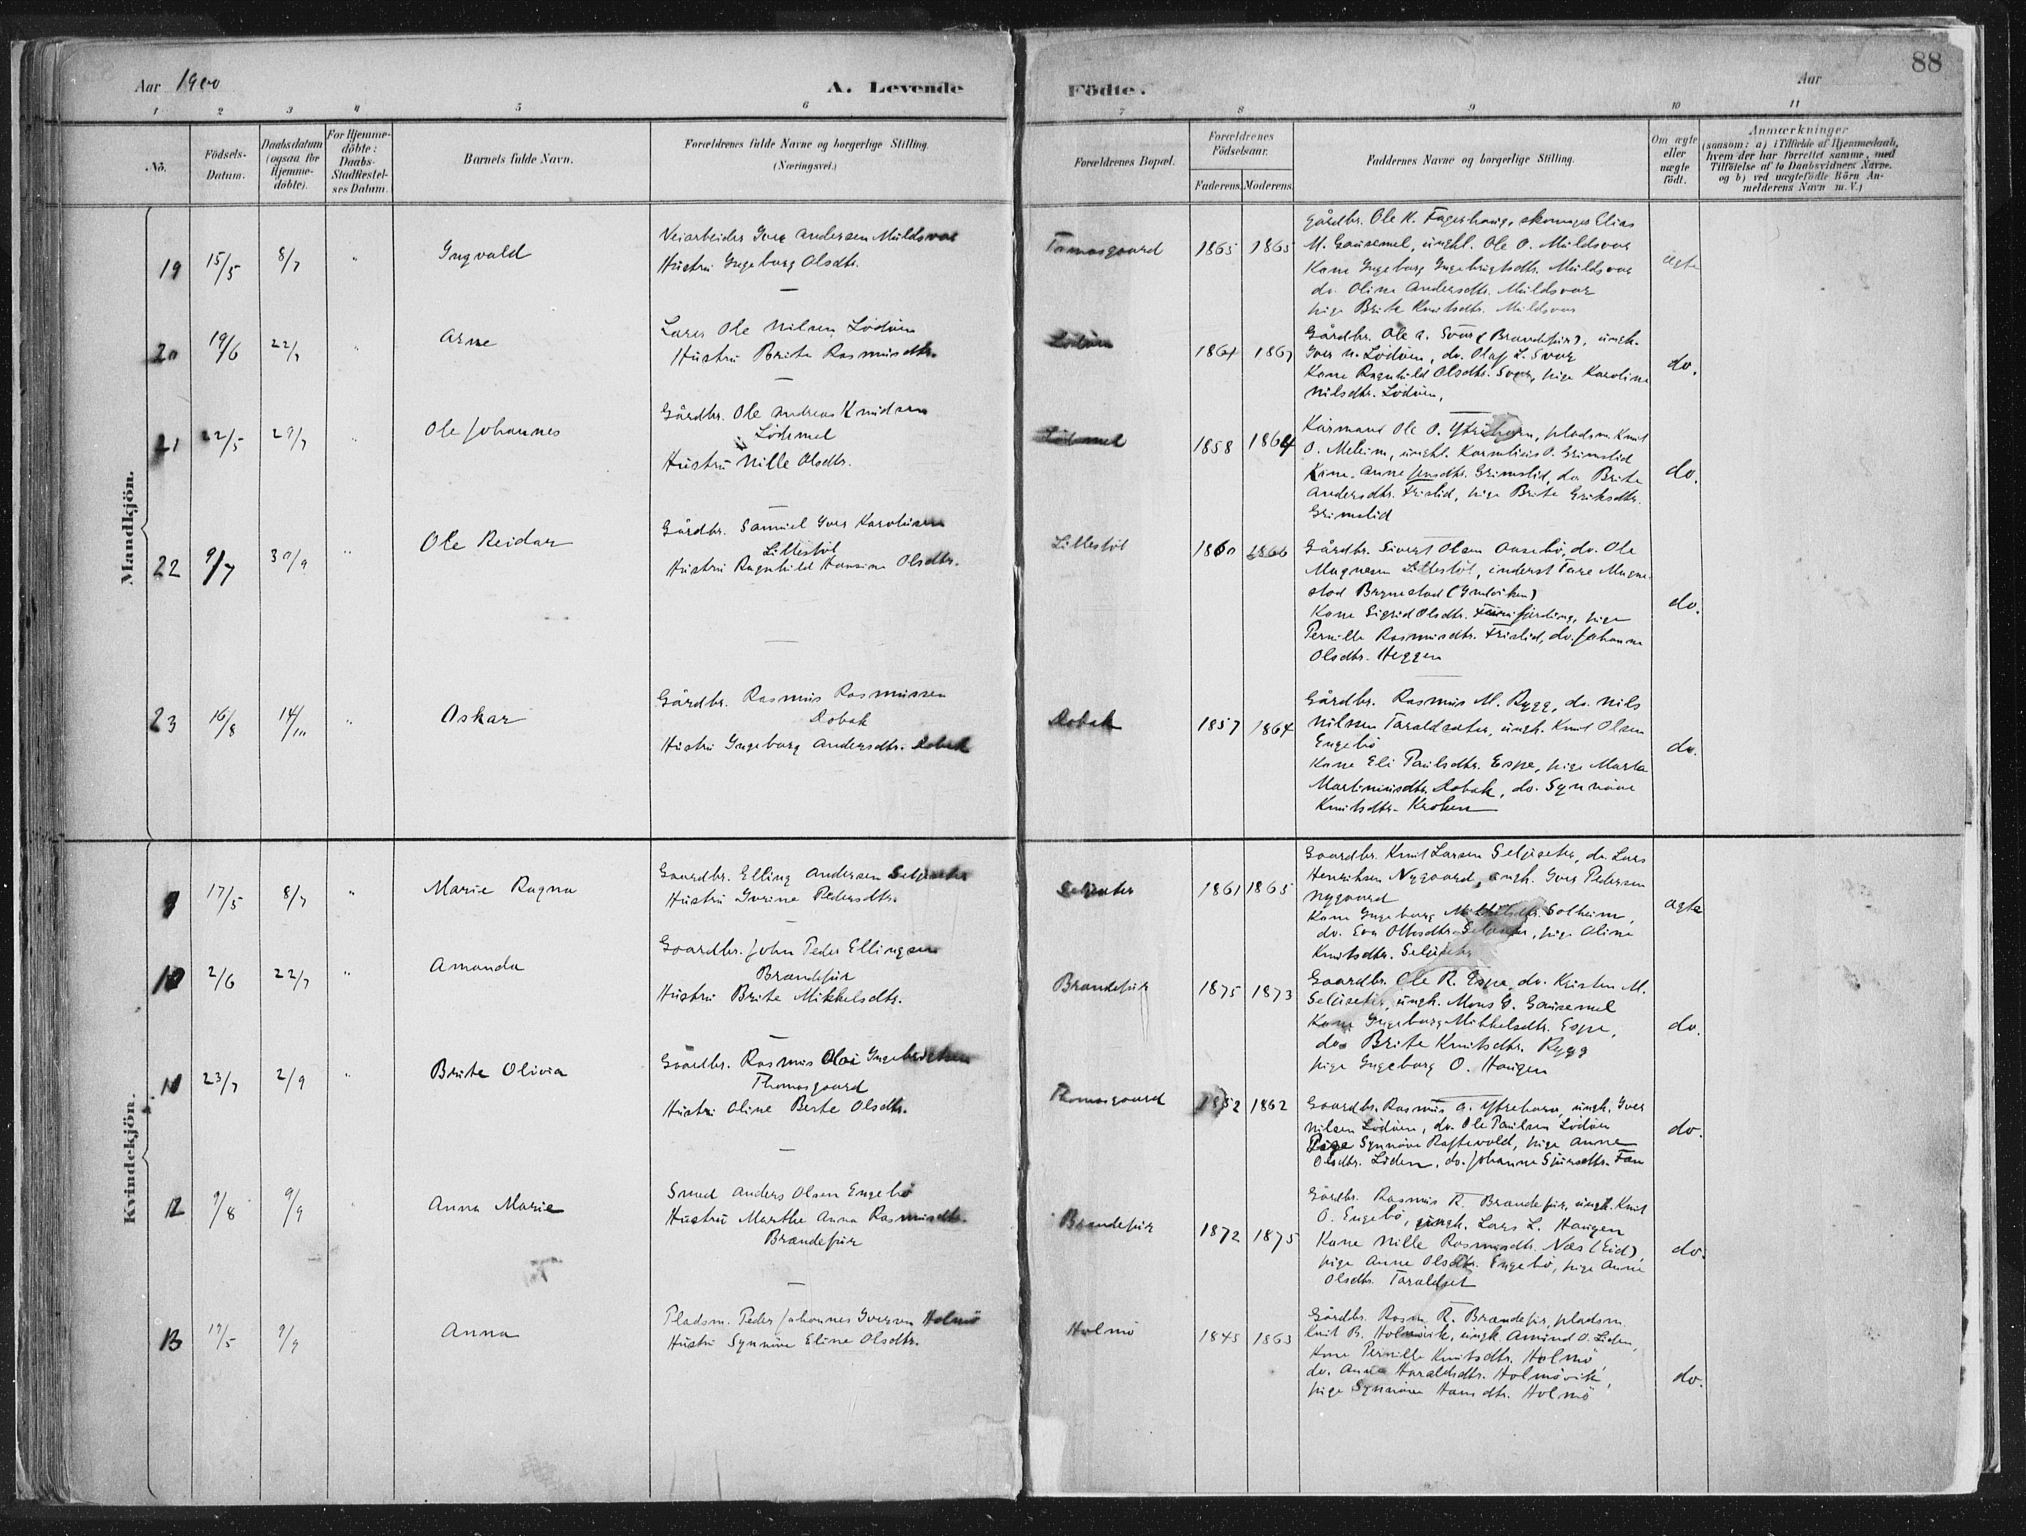 Aar 1900
A. Levende
Födte.
Aar
88
1 2 3 4 5 6 7 8 9 10 11
No.
Födsels-Datum.
Daabsdatum (ogsaa for Hjemme-döbte).
For Hjemme-döbte: Daabs-Stadfæstel-ses Datum.
Barnets fulde Navn.
Forældrenes fulde Navne og borgerlige Stilling. (Næringsvei.)
Forældrenes Bopæl.
Forældrenes Födselsaar.
Faderens. Moderens.
Faddernes Navne og borgerlige Stilling.
Om ægte eller uægte födt.
Anmærkninger
(saasom: a) i Tilfælde af Hjemmedaab, hvem der har forrettet samme, med Tilföielse af to Daabsvidners Navne. og b) ved uægtefödte Börn Anmelderens Navn m. V.)
Mandkjön.
19 15/5 8/7 " Ingvald
Veiarbeider Iver Andersen Muldsvor
Hustru Ingeborg Olsdtr.
Tomasgaard 1865 1865
Gårdbr. Ole K. Fagerhaug, skomager Elias
M. Gausemel, ungkl. Ole O. Muldsvor
Kone Ingeborg Ingebrigtsdtr. Muldsvor
do. Oline Andersdtr. Muldsvor
pige Brite Knutsdtr. Muldsvor
ægte
20 19/6 22/7 " Arne
Lars Ole Nilsen Lödöen
Hustru Brite Rasmusdtr.
Lödöen 1864 1867
Gårdbr. Ole A. Svor (Brandefur), ungk.
Iver N. Lödöen, do. Olaf L. Svor
Kone Ragnhild Olsdtr. Svor, pige Karoline
Nilsdtr. Lödöen,
do.
21 22/5 29/7 " Ole Johannes
Gårdbr. Ole Andreas Knudsen
Lödemel
Hustru Nille Olsdtr.
Lödemel 1858 1864
Kårmand Ole O. Ytrehorn, pladsm. Knut
O. Melheim, ungkl. Kornelius O. Grimslid
Kone Anne Jensdtr. Grimslid, do. Brite
Andersdtr. Frislid, pige Brite Eriksdtr.
Grimslid
do.
22 9/7 30/9 " Ole Reidar
Gårdbr. Samuel Iver Karolusen
Lillestöl
Hustru Ragnhild Hansine Olsdtr.
Lillestöl 1860 1866
Gårdbr. Sivert Olsen Aasebö, do. Ole
Magnesen Lillestöl, inderst Tore Magne-
stad Brynestad (Indviken)
Kone Sigrid Olsdtr. Fuurefjording, pige
Pernille Rasmusdtr. Frislid, do. Johanne
Olsdtr. Heggen
do.
23 16/8 14/10 " Oskar
Gårdbr. Rasmus Rasmussen
Dobak
Hustru Ingeborg Andersdtr. Dobak
Dobak 1857 1864
Gårdbr. Rasmus M. Rygg, do. Nils
Nilssen Taraldsæter, ungk. Knut Olsen
Engebö
Kone Eli Paulsdtr. Espe, pige Marta
Martinusdtr. Dobak, do. Synnöve
Knutsdtr. Kroken
do.
Kvindekjön.
9 17/5 8/7 " Marie Ragna
Gaardbr. Elling Andersen Seljeseter
Hustru Iverine Pedersdtr.
Seljeseter 1861 1865
Gaardbr. Knut Larsen Seljeseter, do. Lars
Henriksen Nygaard, ungk. Iver Pedersen
Nygaard
Kone Ingeborg Mikkelsdtr. Solheim,
do. Eva Ottosdtr., pige Oline
Knutsdtr. Seljeseter
ægte
10 2/6 22/7 " Amanda
Gaardbr. John Peder Ellingsen
Brandefur
Hustru Brite Mikkelsdtr.
Brandefur 1875 1873
Gaardbr. Ole R. Espe, do. Kristen M.
Seljeseter, ungk. Mons G. Gausemel
Kone Ingeborg Mikkelsdtr. Espe,
do. Brite Knutsdtr. Rygg
pige Ingeborg O. Haugen
do.
11 23/7 2/9 " Brite Olivia
Gaardbr. Rasmus Olai Ingebrigtsen
Thomasgaard
Hustru Oline Berte Olsdtr.
Thomasgaard 1852 1862
Gaardbr. Rasmus A. Ytrehorn, ungk. Iver
Nilsen Lödöen, do. Ole Paulsen Lödöen
Pige Synnöve Raftevold, pige Anne
Olsdtr. Liden, do. Johanne Sjursdtr.
do.
12 9/8 9/9 Anna Marie
Smed Anders Olsen Engebö
Hustru Marthe Anna Rasmusdtr.
Brandefur
Brandefur 1872 1875
Gårdbr. Rasmus R. Brandefur, ungk. Knut
O. Engebö, ungk. Lars L. Haugen
Kone Nille Rasmusdtr. Næs (Eid),
pige Anne Olsdtr. Engebö, pige Anne
Olsdtr. Taraldset
do.
13 17/5 9/9 Anna
Pladsm. Peder Johannes Iversen Holmö
Hustru Synnöve Eline Olsdtr.
Holmö 1845 1863
Gårdbr. Rasm. R. Brandefur, pladsm.
Knut B. Holmövik, ungk. Amund O. Liden,
Kone Pernille Knutsdtr. Holmö,
do. Anna Haraldsdtr. Holmövik,
pige Synnöve Hansdtr. Holmö
do.